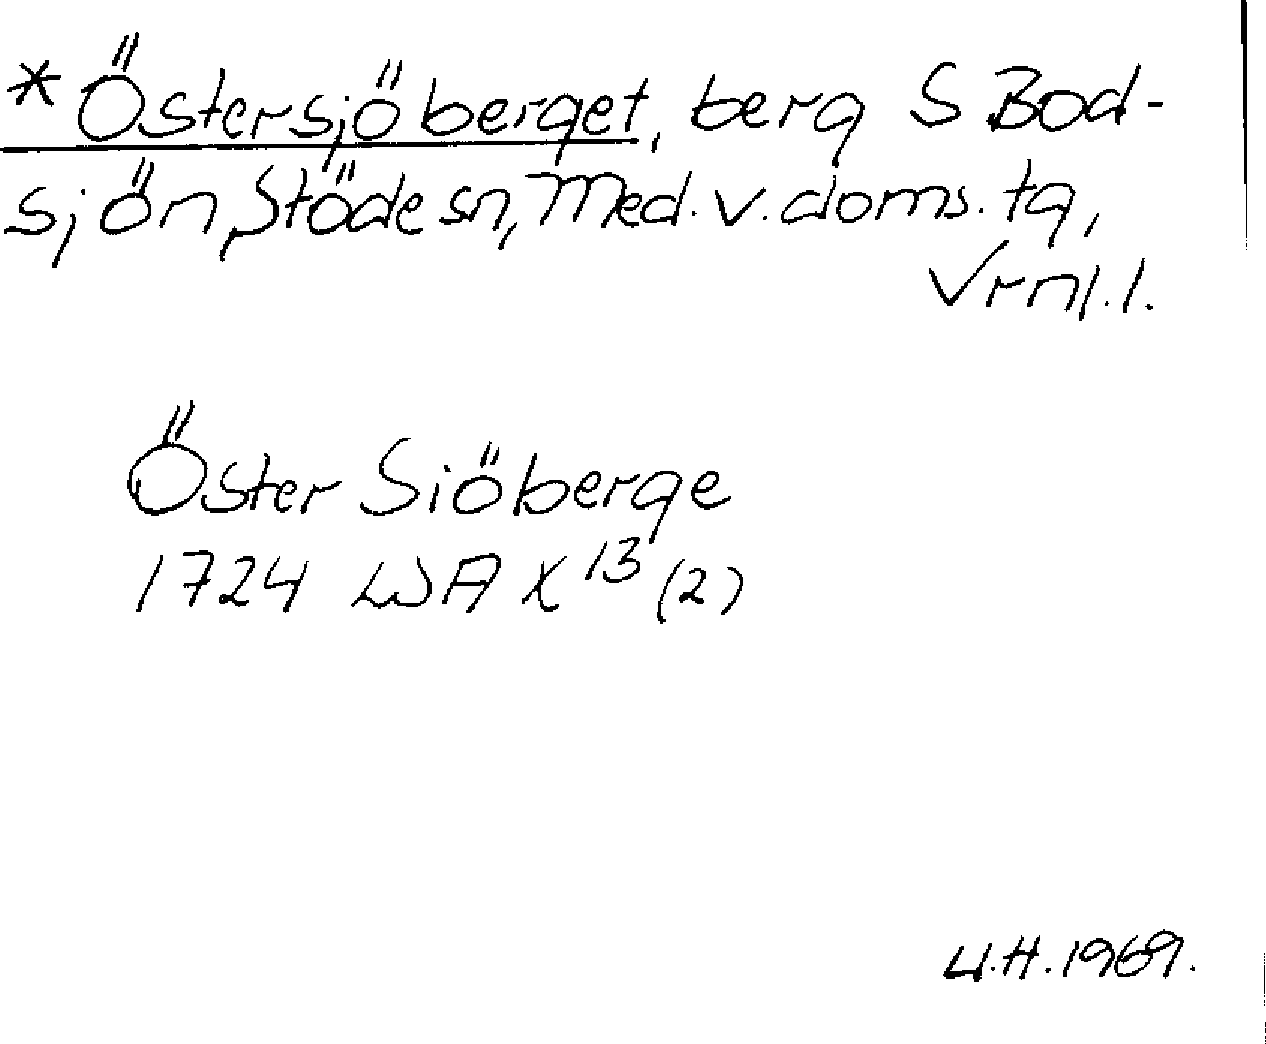 *Östersjöberget, berg S Bod-
sjön, Stöde sn, Med. v. doms. tg,
Vrnl. l.
Öster Siöberge
1724 LSA X 13 (2)
U.H. 1969.